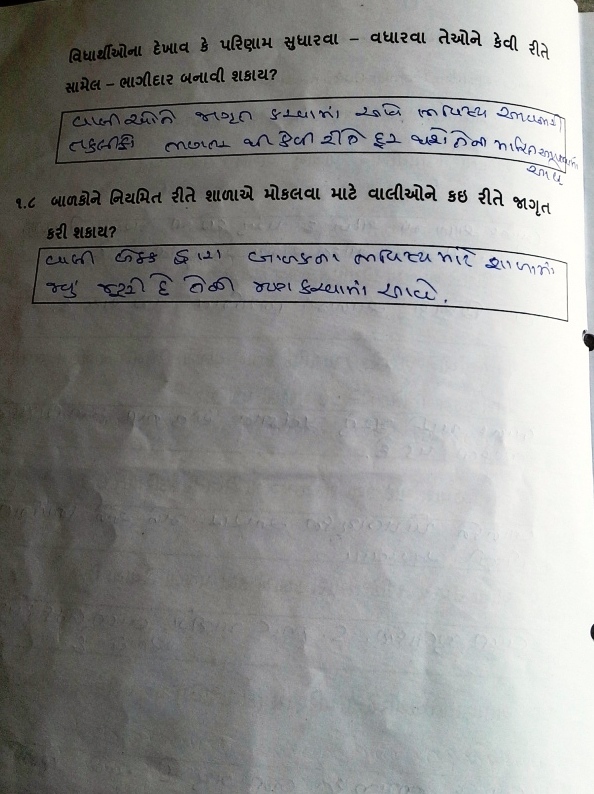 વિદ્યાર્થીઓના દેખાવ કે પરિણામ સુધારવા – વધારવા તેઓને કેવી રીતે
સામેલ – ભાગીદાર બનાવી શકાય?
વાલીઓને જાગૃત કરવામાં આવે ભવિષ્ય આવનારી
તકલીફો ભણતર થી કેવી રીતે દુર થશે તેની માહિતી આપવામાં
આવે
૧.૮ બાળકોને નિયમિત રીતે શાળાએ મોકલવા માટે વાલીઓને કઇ રીતે જાગૃત
કરી શકાય?
વાલી બેઠક દ્વારા બાળકના ભવિષ્ય માટે શાળામાં
જવું જરૂરી છે તેની જાણ કરવામાં આવે.